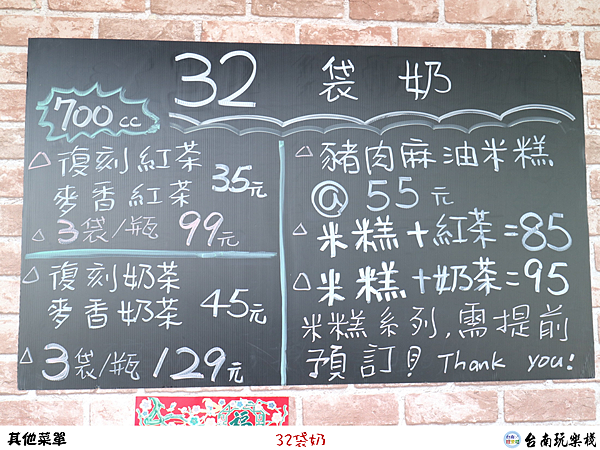 32 袋奶
700cc
△復刻紅茶
麥香紅茶 35元
△3袋/瓶 99元
△復刻奶茶
麥香奶茶 45元
△3袋/瓶 129元
△豬肉麻油米糕
@55元
△米糕+紅茶=85
△米糕+奶茶=95
米糕系列,需提前
預訂! Thank you!
福
其他菜單
32袋奶
台南玩樂棧